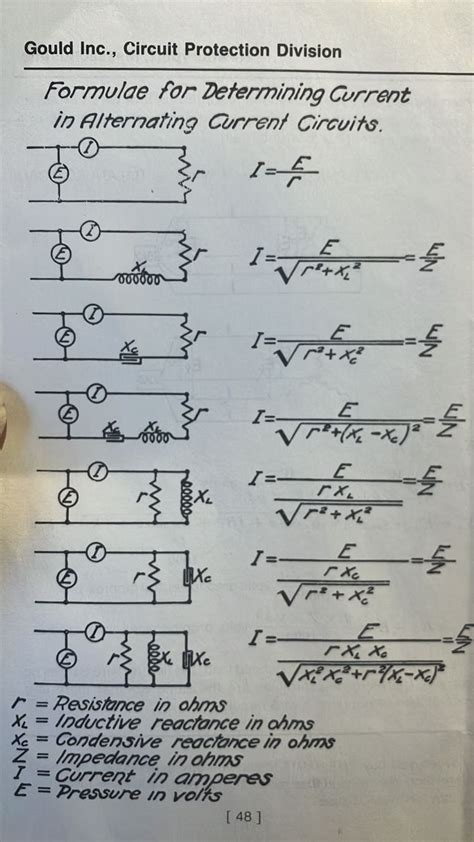 Gould Inc., Circuit Protection Division
Formulae for Determining Current
in Alternating Current Circuits.
I E r I = E / r
I E XL r I = E / √(r² + XL²) = E / Z
I E Xc r I = E / √(r² + Xc²) = E / Z
I E Xc XL r I = E / √(r² + (XL - Xc)²) = E / Z
I E r XL I = E / (r XL / √(r² + XL²)) = E / Z
I E r Xc I = E / (r Xc / √(r² + Xc²)) = E / Z
I E r XL Xc I = E / (r XL Xc / √(XL² Xc² + r²(XL - Xc)²)) = E / Z
r = Resistance in ohms
XL = Inductive reactance in ohms
Xc = Condensive reactance in ohms
Z = Impedance in ohms
I = Current in amperes
E = Pressure in volts
[ 48 ]